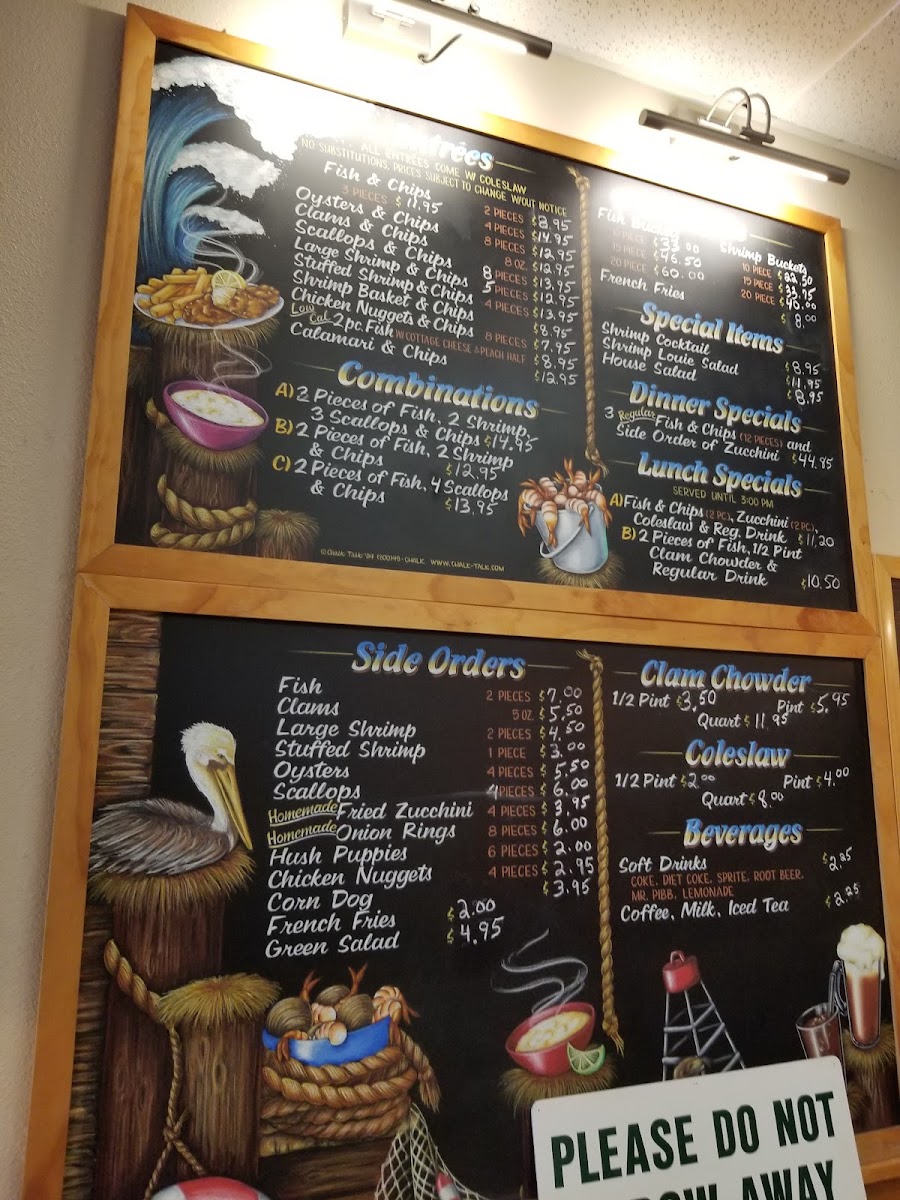 Entrées
ALL ENTRÉES COME W/ COLESLAW
NO SUBSTITUTIONS, PRICES SUBJECT TO CHANGE W/OUT NOTICE
Fish & Chips
3 PIECES $11.95 2 PIECES $8.95
Oysters & Chips 4 PIECES $14.95
Clams & Chips 8 PIECES $12.95
Scallops & Chips 8 OZ. $12.95
Large Shrimp & Chips 8 PIECES $13.95
Stuffed Shrimp & Chips 5 PIECES $12.95
Shrimp Basket & Chips 4 PIECES $13.95
Chicken Nuggets & Chips $8.95
Low Cal. 2 pc. Fish W/ COTTAGE CHEESE & PEACH HALF 8 PIECES $7.95
Calamari & Chips $8.95
$12.95
Combinations
A) 2 Pieces of Fish, 2 Shrimp,
3 Scallops & Chips $14.95
B) 2 Pieces of Fish, 2 Shrimp
& Chips $12.95
C) 2 Pieces of Fish, 4 Scallops
& Chips $13.95
WWW.CHALK-TALK.COM
Fish
10 PIECE
15 PIECE $46.50
20 PIECE $60.00
Shrimp Buckets
10 PIECE $22.50
15 PIECE $33.75
20 PIECE $40.00
French Fries $8.00
Special Items
Shrimp Cocktail $8.95
Shrimp Louie Salad $11.95
House Salad $8.95
Dinner Specials
3 Regular Fish & Chips (12 PIECES) and
Side Order of Zucchini $44.85
Lunch Specials
SERVED UNTIL 3:00 PM
A) Fish & Chips (2 PC), Zucchini (2 PC),
Coleslaw & Reg. Drink $11.20
B) 2 Pieces of Fish, 1/2 Pint
Clam Chowder &
Regular Drink $10.50
Side Orders
Fish 2 PIECES $7.00
Clams 5 OZ. $5.50
Large Shrimp 2 PIECES $4.50
Stuffed Shrimp 1 PIECE $3.00
Oysters 4 PIECES $5.50
Scallops 4 PIECES $6.00
Homemade Fried Zucchini 4 PIECES $3.95
Homemade Onion Rings 8 PIECES $6.00
Hush Puppies 6 PIECES $2.00
Chicken Nuggets 4 PIECES $2.95
Corn Dog $3.95
French Fries $2.00
Green Salad $4.95
Clam Chowder
1/2 Pint $3.50 Pint $5.95
Quart $11.95
Coleslaw
1/2 Pint $2.00 Pint $4.00
Quart $8.00
Beverages
Soft Drinks $2.25
COKE, DIET COKE, SPRITE, ROOT BEER,
MR. PIBB, LEMONADE
Coffee, Milk, Iced Tea $2.25
PLEASE DO NOT
AWAY